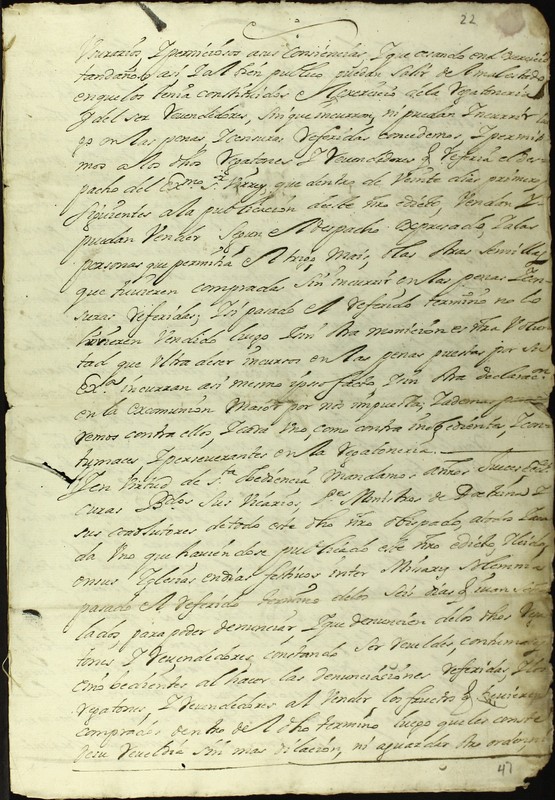 22
Vsurario, y pernicioso a sus consiencias, y que cesando en el
tan dañoso así, y al bien publico puedan salir de el mal estado
en que los tenia constituidos el exercicio de la Regatoneria
y del ser Revendedores, sin que incurran, ni puedan incurrir
en las penas, y censuras referidas concedemos, y permiti
mos a los dhos Regatones y Revendedores q refiere el Des
pacho del Exmo Sr Virrey, que dentro de Veinte dias primeros
siguientes a la publicacion de este nro edicto, Vendan, y
puedan Vender segun el Despacho expresado, a las
personas que permite el trigo, Mais, y las otras semillas
que tuvieren compradas sin incurrir en las penas y cen
suras referidas; y si pasado el referido termino no lo
huvieren Vendido luego sin otra monicion es nra Volun
tad que Ultra de ser incursos en las penas puestas por Su
Exa incurran asi mismo ipso facto y sin otra declaraon
en la excomunion Maior por nos impuesta, y
remos contra ellos, y cada Uno como contra inobedientes, y con
tumaces, y perseverantes en la Regatoneria.
Y en Virtud de Sta obediencia Mandamos a nros Jueces
Curas Bdos sus Vicarios, Pes Ministros de Doctrina y
sus coadiutores de todo este dho nro obispado, a todos y a ca
da Uno que haviendose publicado este nro edicto, y leido
en sus Iglesias en dias festivos inter Missarum Solemnia
pasado el referido termino de los seis dias q
lados, para poder denunciar, y que denuncien de los dhos Rega
tones y Revendedores, constando ser reveldes, contumaces
e inobedientes al hacer las denunciaciones referidas, y los
regatones, y Revendedores al Vender los fructos q tuvieren
comprados dentro de el dho termino, luego que les conste
de su reveldia sin mas dilacion, ni aguardar otra orden
47